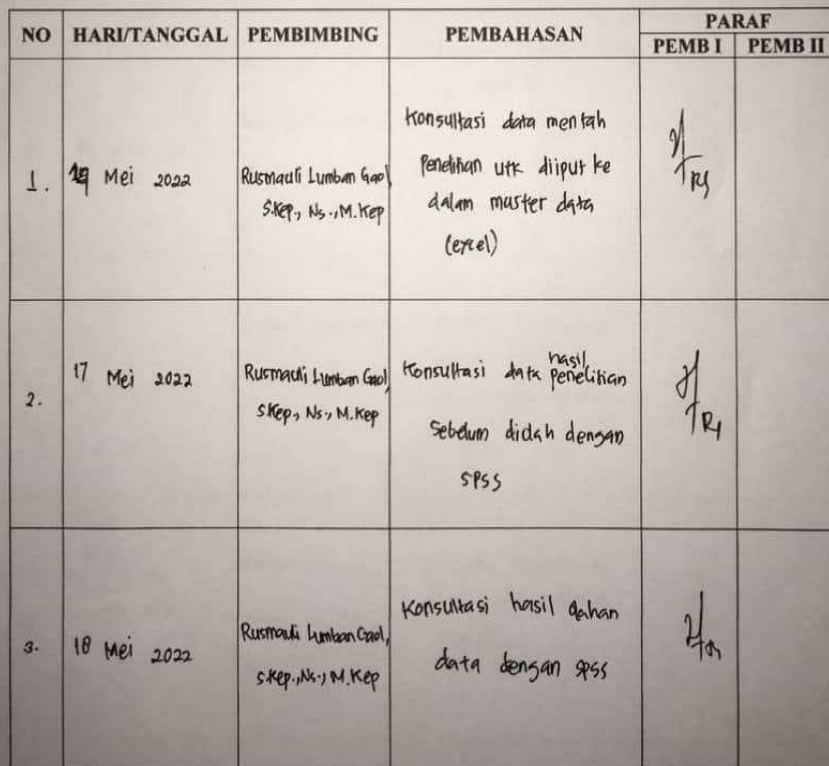 NO HARI/TANGGAL PEMBIMBING PEMBAHASAN PARAF
PEMB I PEMB II
1. Mei 2022
Rusmauli Lumban Gaol
S.Kep., Ns., M.Kep
Konsultasi data mentah
Penelitian utk diiput ke
dalam master data
(excel)
2. 17 Mei 2022
Rusmauli Lumban Gaol,
S.Kep., Ns., M.Kep
Konsultasi data hasil penelitian
Sebelum diolah dengan
SPSS
3. 18 Mei 2022
Rusmauli Lumban Gaol,
S.Kep., Ns., M.Kep
Konsultasi hasil olahan
data dengan SPSS